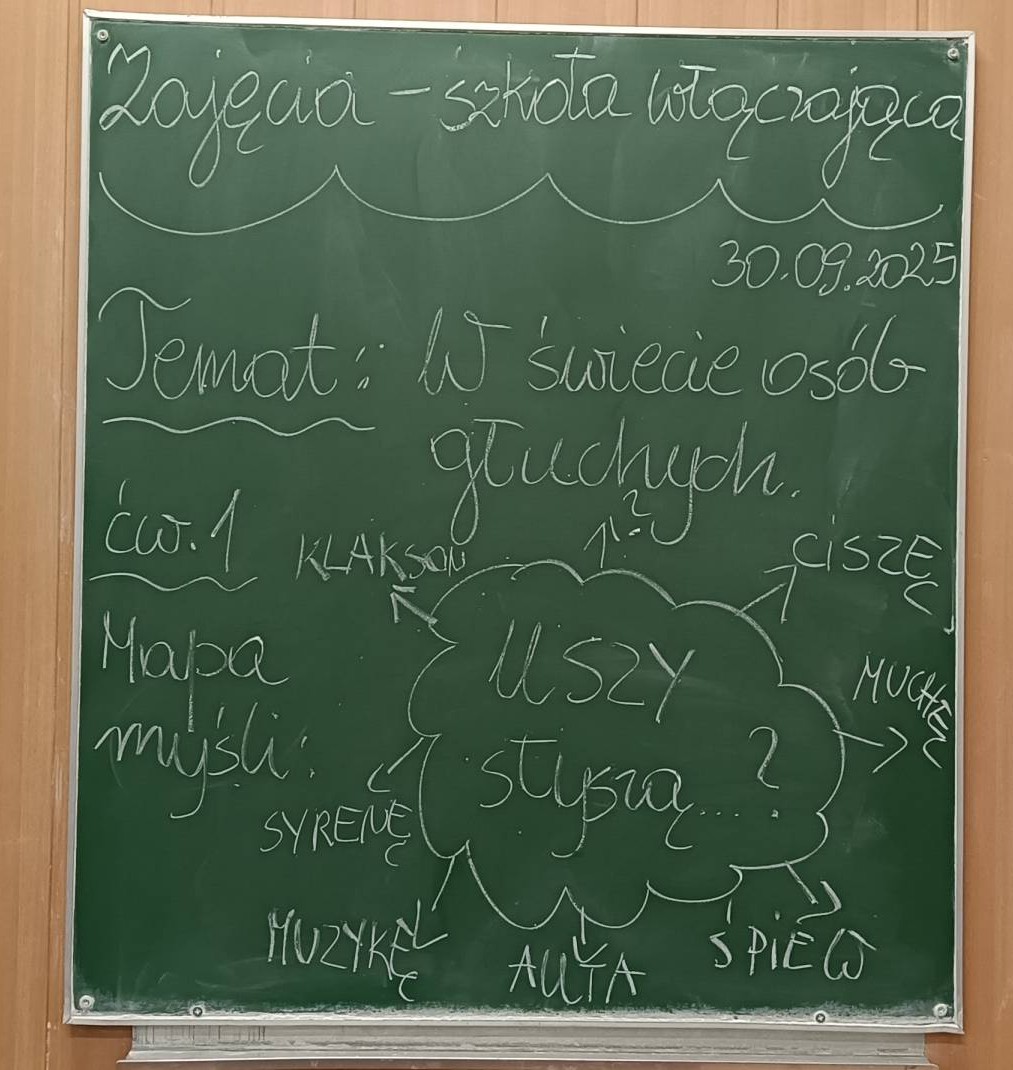 Zajęcia - szkoła włączająca
30.09.2025
Temat: W świecie osób
głuchych.
ćw. 1
Mapa
myśli:
KLAKSON
?
CISZĘ
MUCHĘ
USZY
słyszą...?
SYRENĘ
MUZYKĘ
AUTA
ŚPIEW